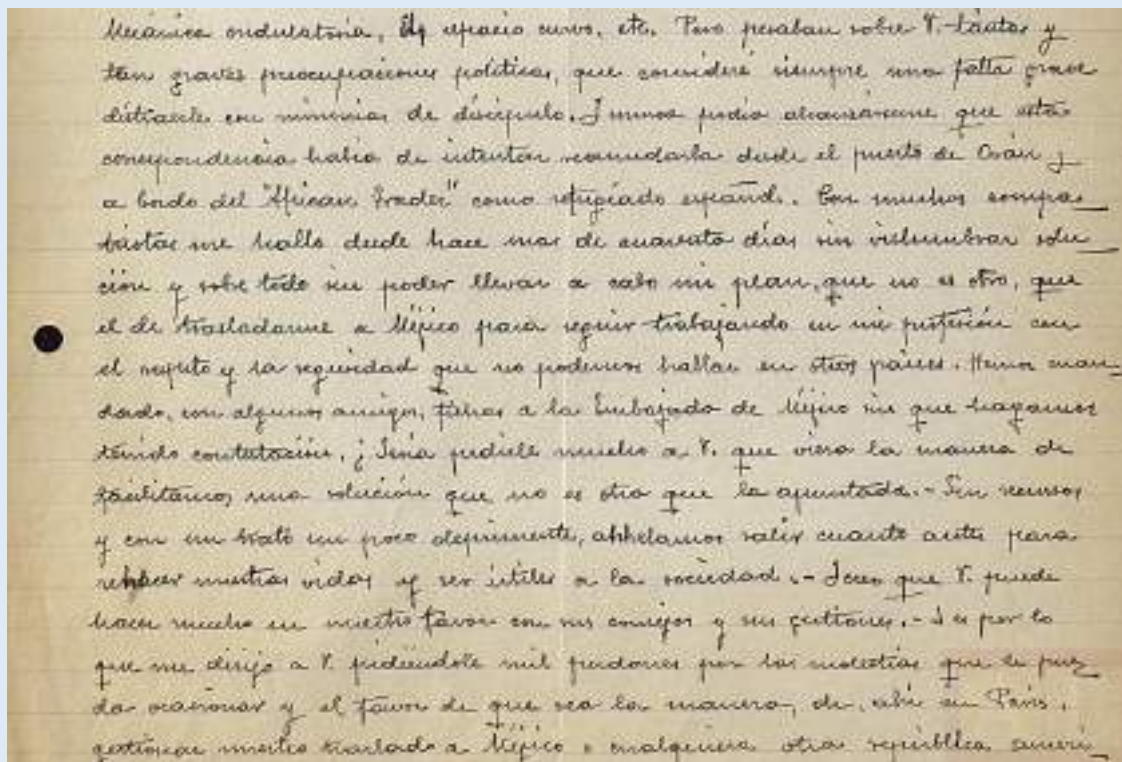 Mecánica ondulatoria, espacio curvo, etc. Pero pesaban sobre V. tantas y
tan graves preocupaciones políticas, que consideré siempre una falta grave
distraerle con minucias de discípulo. I nunca podía alcanzárseme que esta
correspondencia había de intentar reanudarla desde el puerto de Orán y
a bordo del "African Trader" como refugiado español. Con muchos compa_
triotas me hallo desde hace mas de cuarenta días sin vislumbrar solu_
ción y sobre todo sin poder llevar a cabo mi plan, que no es otro, que
el de trasladarme a Méjico para seguir trabajando en mi profesión con
el respeto y la seguridad que no podemos hallar en otros países. Hemos man_
dado, con algunos amigos, a la Embajada de Méjico sin que hayamos
tenido contestación. ¿Sería pedirle mucho a V. que viera la manera de
facilitarnos una solución que no es otra que la apuntada.- Sin recursos
y con un trato un poco deprimente, anhelamos salir cuanto antes para
rehacer nuestras vidas y ser útiles a la sociedad.- I creo que V. puede
hacer mucho en nuestro favor con sus consejos y sus gestiones.- I es por lo
que me dirijo a V. pidiéndole mil perdones por las molestias que le pue_
da ocasionar y el favor de que vea la manera, de, ahí en París,
gestionar nuestro traslado a Méjico o cualquiera otra república ameri_